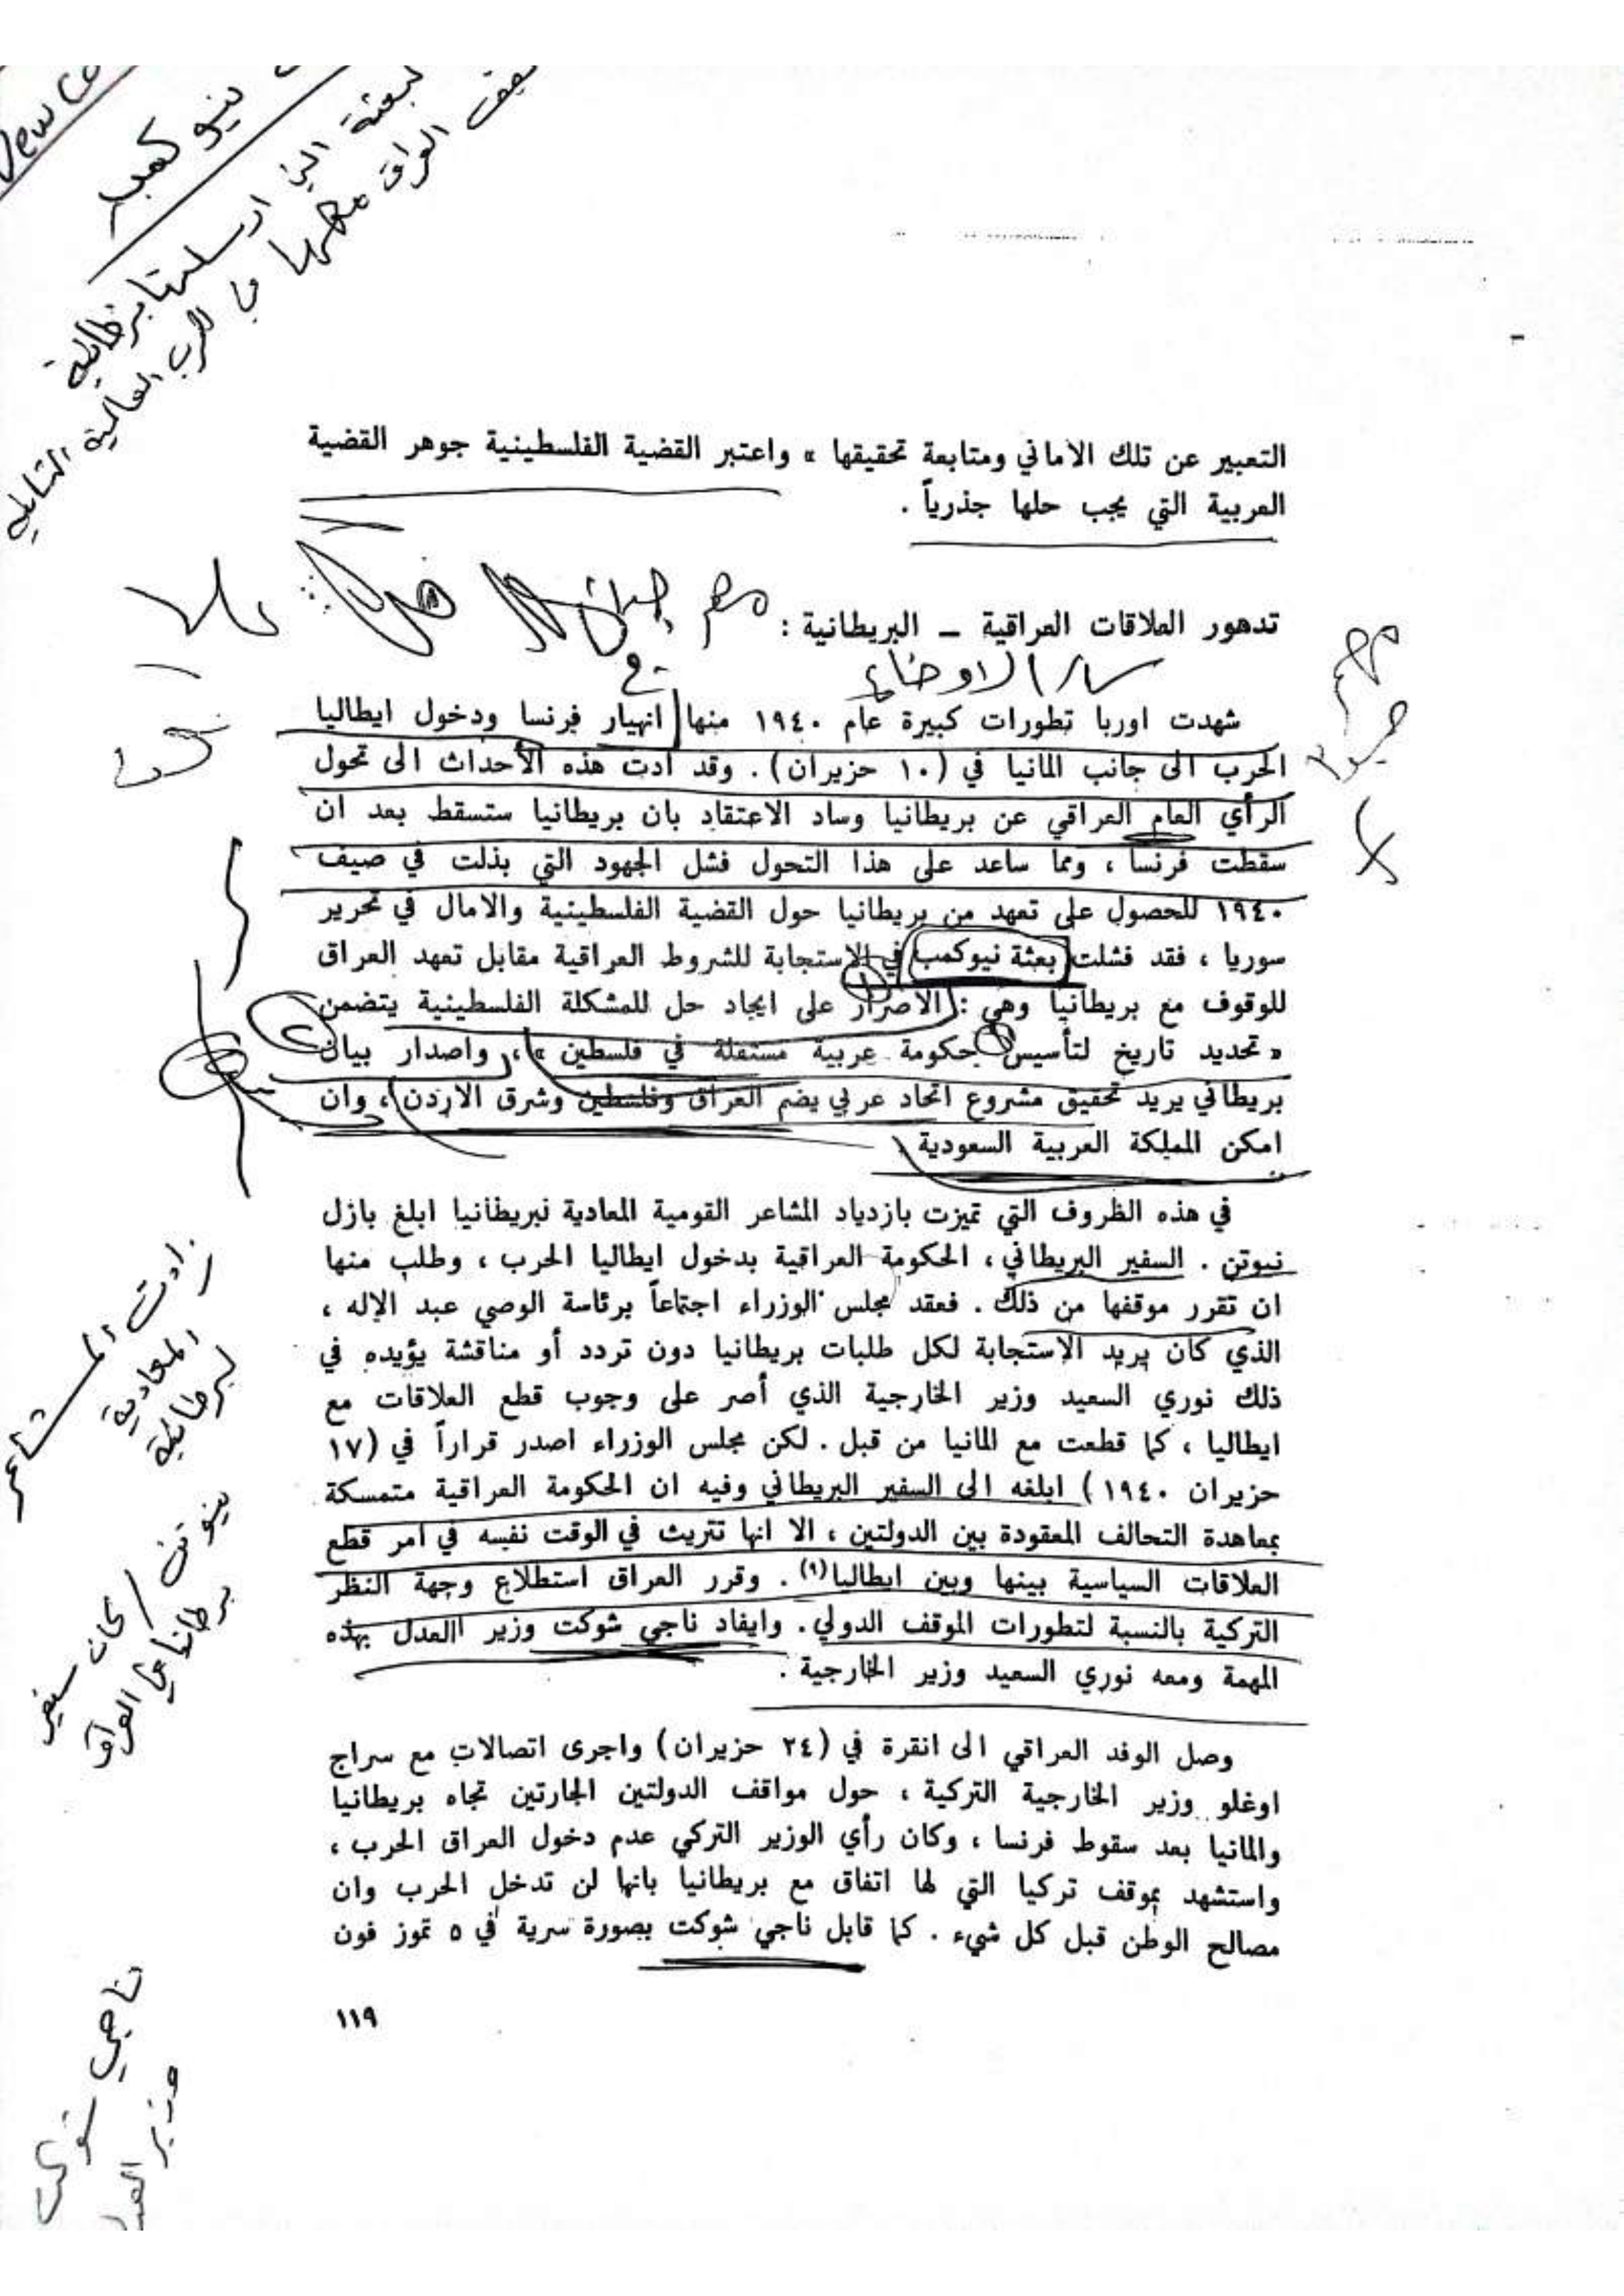 نيو كمب
البعثة التي ارسلتها بريطانية
العراق معها في الحرب العالمية الثانية
التعبير عن تلك الاماني ومتابعة تحقيقها » واعتبر القضية الفلسطينية جوهر القضية
العربية التي يجب حلها جذرياً .
مهم جداً
تدهور العلاقات العراقية ــ البريطانية :
الاوضاع
مهم
جداً
شهدت اوربا تطورات كبيرة عام ١٩٤٠ منها انهيار فرنسا ودخول ايطاليا
الحرب الى جانب المانيا في (١٠ حزيران) . وقد ادت هذه الأحداث الى تحول
الرأي العام العراقي عن بريطانيا وساد الاعتقاد بان بريطانيا ستسقط بعد ان
سقطت فرنسا ، ومما ساعد على هذا التحول فشل الجهود التي بذلت في صيف
١٩٤٠ للحصول على تعهد من بريطانيا حول القضية الفلسطينية والامال في تحرير
سوريا ، فقد فشلت بعثة نيوكمب في الاستجابة للشروط العراقية مقابل تعهد العراق
للوقوف مع بريطانيا وهي : الاصرار على ايجاد حل للمشكلة الفلسطينية يتضمن
« تحديد تاريخ لتأسيس حكومة عربية مستقلة في فلسطين » ، واصدار بيان
بريطاني يريد تحقيق مشروع اتحاد عربي يضم العراق وفلسطين وشرق الاردن ، وان
امكن المملكة العربية السعودية .
في هذه الظروف التي تميزت بازدياد المشاعر القومية المعادية لبريطانيا ابلغ بازل
نيوتن . السفير البريطاني ، الحكومة العراقية بدخول ايطاليا الحرب ، وطلب منها
ان تقرر موقفها من ذلك . فعقد مجلس الوزراء اجتماعاً برئاسة الوصي عبد الإله ،
الذي كان يريد الاستجابة لكل طلبات بريطانيا دون تردد أو مناقشة يؤيده في
ذلك نوري السعيد وزير الخارجية الذي أصر على وجوب قطع العلاقات مع
ايطاليا ، كما قطعت مع المانيا من قبل . لكن مجلس الوزراء اصدر قراراً في (١٧
حزيران ١٩٤٠) ابلغه الى السفير البريطاني وفيه ان الحكومة العراقية متمسكة
بمعاهدة التحالف المعقودة بين الدولتين ، الا انها تتريث في الوقت نفسه في امر قطع
العلاقات السياسية بينها وبين ايطاليا(٩) . وقرر العراق استطلاع وجهة النظر
التركية بالنسبة لتطورات الموقف الدولي . وايفاد ناجي شوكت وزير العدل بهذه
المهمة ومعه نوري السعيد وزير الخارجية .
زادت المشاعر
المعادية
لبريطانية
نيوتن / كان سفير
بريطانيا في العراق
وصل الوفد العراقي الى انقرة في (٢٤ حزيران) واجرى اتصالات مع سراج
اوغلو وزير الخارجية التركية ، حول مواقف الدولتين الجارتين تجاه بريطانيا
والمانيا بعد سقوط فرنسا ، وكان رأي الوزير التركي عدم دخول العراق الحرب ،
واستشهد بموقف تركيا التي لها اتفاق مع بريطانيا بانها لن تدخل الحرب وان
مصالح الوطن قبل كل شيء . كما قابل ناجي شوكت بصورة سرية في ٥ تموز فون
ناجي شوكت
وزير
١١٩